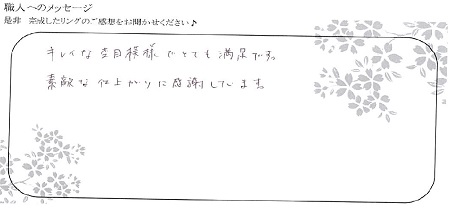 職人へのメッセージ
是非 完成したリングのご感想をお聞かせください♪
キレイな杢目模様でとても満足です。
素敵な仕上がりに感謝しています。